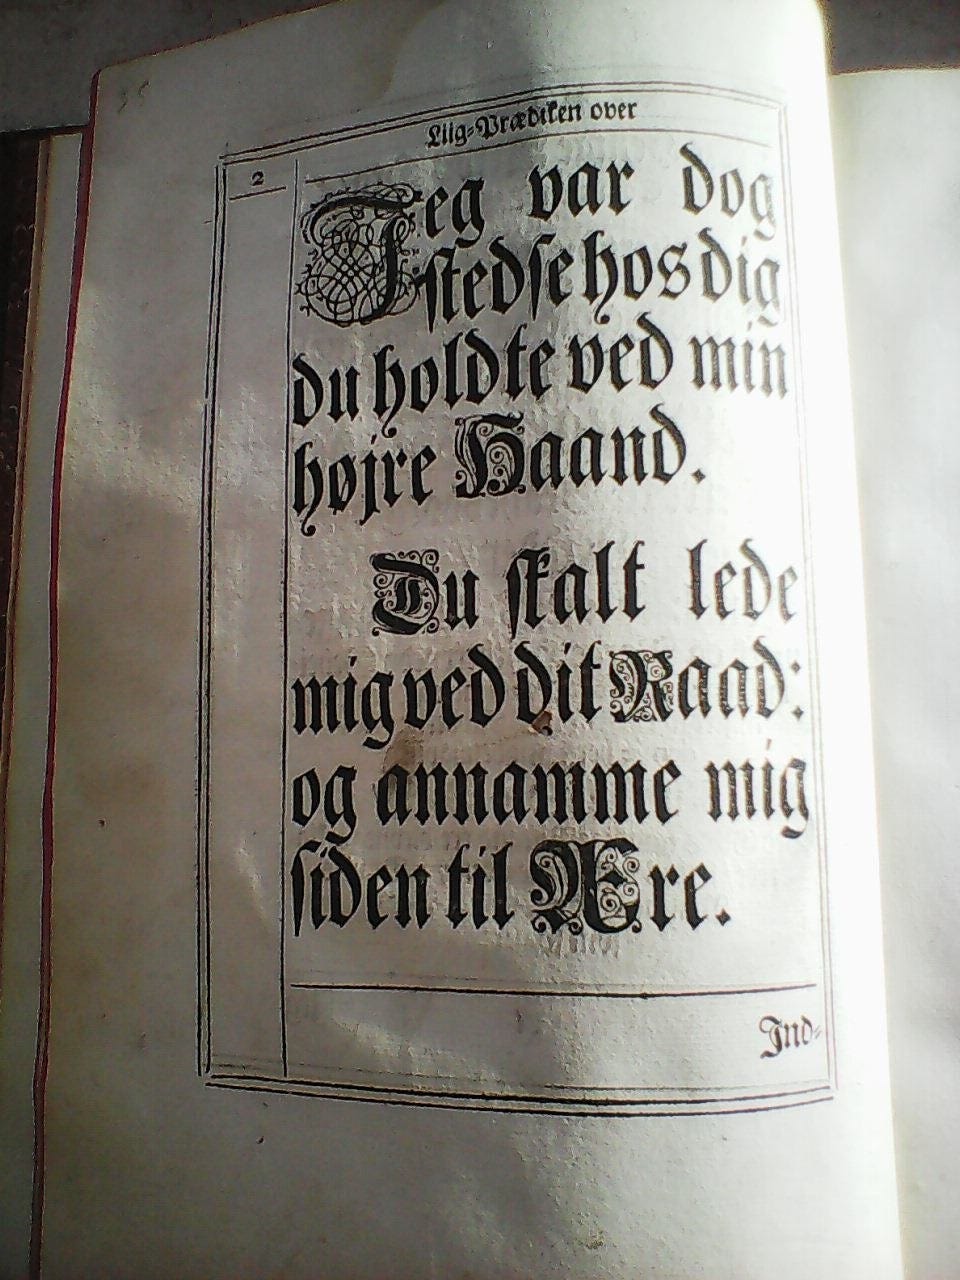 Liig=Prædiken over
2
Jeg var dog
stedse hos dig
du holdte ved min
højre Haand.
Du skalt lede
mig ved dit Raad:
og annamme mig
siden til Ære.
Ind=